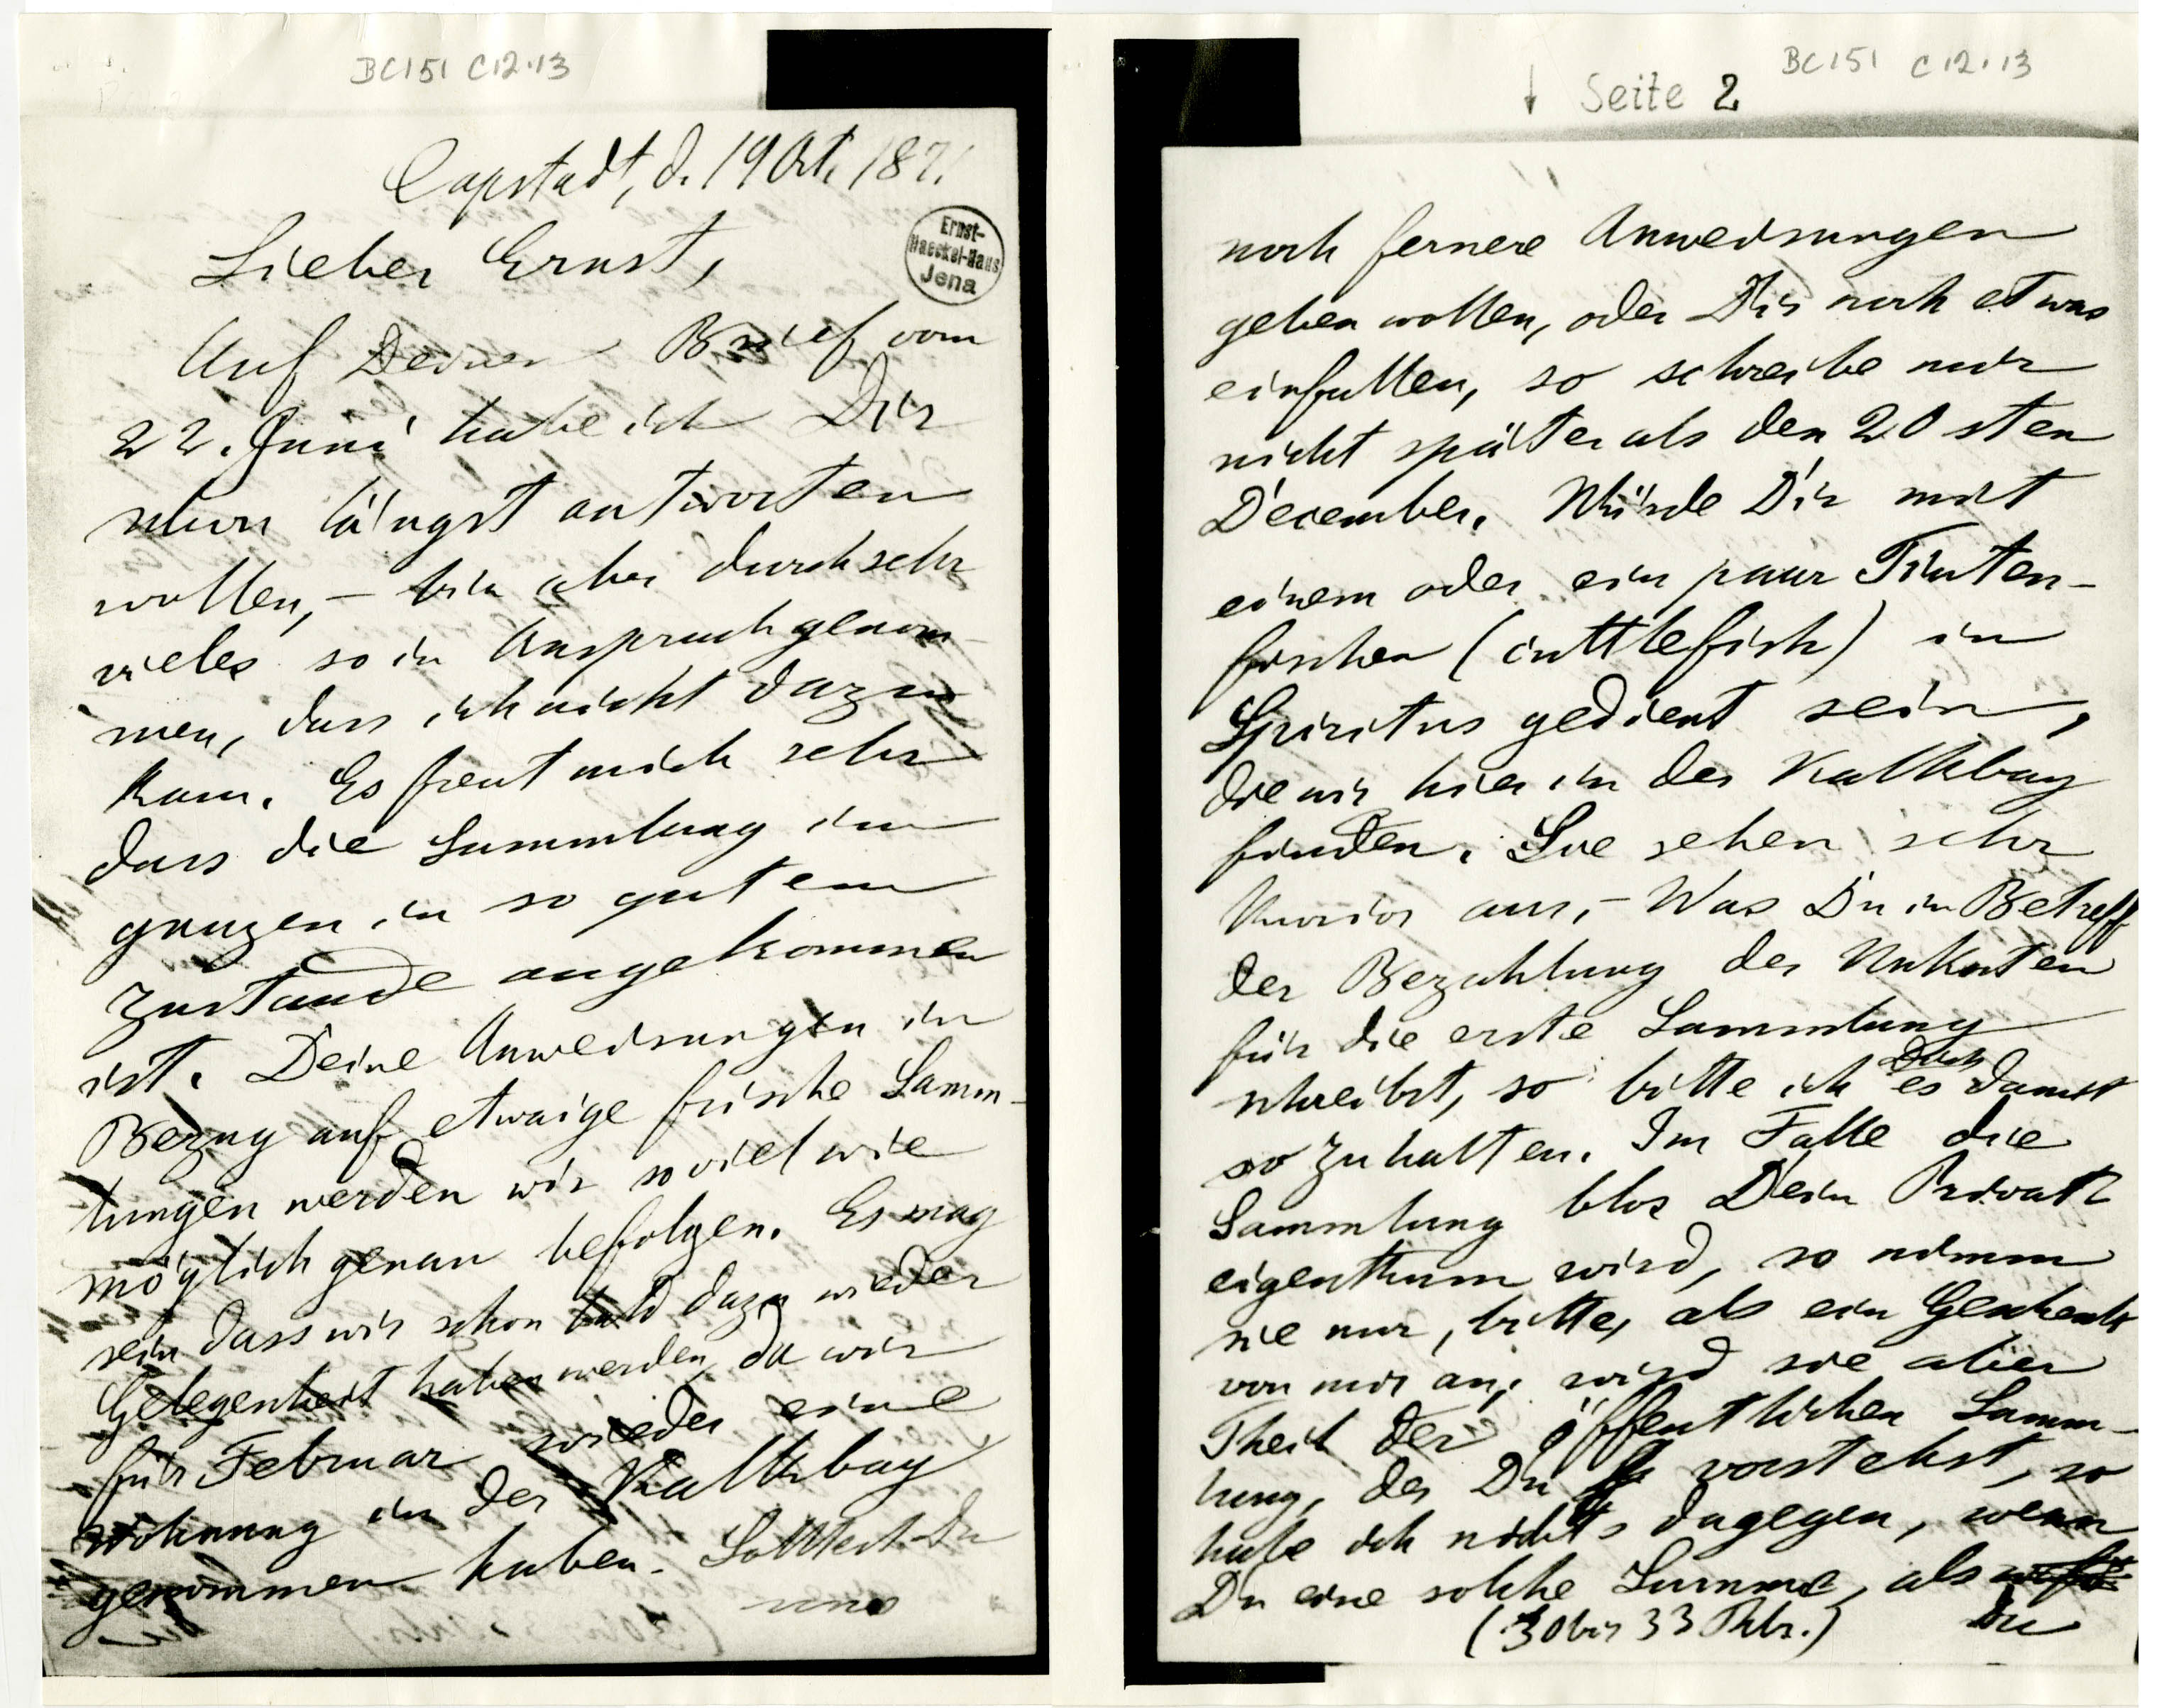 BC151 C12.13
Capstadt, d. 19 Oct. 1871.
Ernst-
Haeckel-Haus
Jena
Lieber Ernst,
Auf Deinen Brief vom
22. Juni habe ich Dir
schon längst antworten
wollen, – bin aber durch sehr
vieles so in Anspruch genom-
men, dass ich nicht dazu
kam. Es freut mich sehr
dass die Sammlung im
ganzen in so gutem
Zustande angekommen
ist. Deine Anweisungen in
Bezug auf etwaige frische Samm-
lungen werden wir so viel wie
möglich genau befolgen. Es mag
sein dass wir schon bald dazu wieder
Gelegenheit haben werden, da wir
für Februar wieder eine
Wohnung in der Kalkbay
genommen haben. Solltest Du
uns
BC151 C12.13
↓ Seite 2
noch fernere Anweisungen
geben wollen, oder Dir noch etwas
einfallen, so schreibe mir
nicht später als den 20sten
December. Würde Dir mit
einem oder ein paar Tinten-
fischen (cuttlefish) in
Spiritus gedient sein,
die wir hier in der Kalkbay
finden. Sie sehen sehr
kurios aus. – Was Du in Betreff
der Bezahlung der Unkosten
für die erste Sammlung
schreibst, so bitte ich es damit
Dich
so zu halten. Im Falle die
Sammlung blos Dein Privat
eigenthum wird, so nimm
sie nur, bitte, als ein Geschenk
von mir an; wird sie aber
Theil der öffentlichen Samm-
lung, der Du vorstehst, so
habe ich nichts dagegen, wenn
Du eine solche Summe, als
(30 bis 33 Thlr.) Du